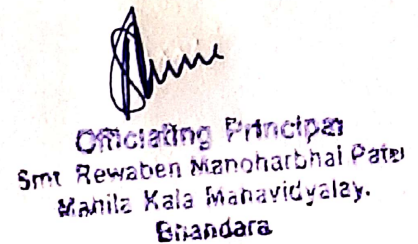 Officiating Principal
Smt. Rewaben Manoharbhai Patel
Mahila Kala Mahavidyalay.
Bhandara